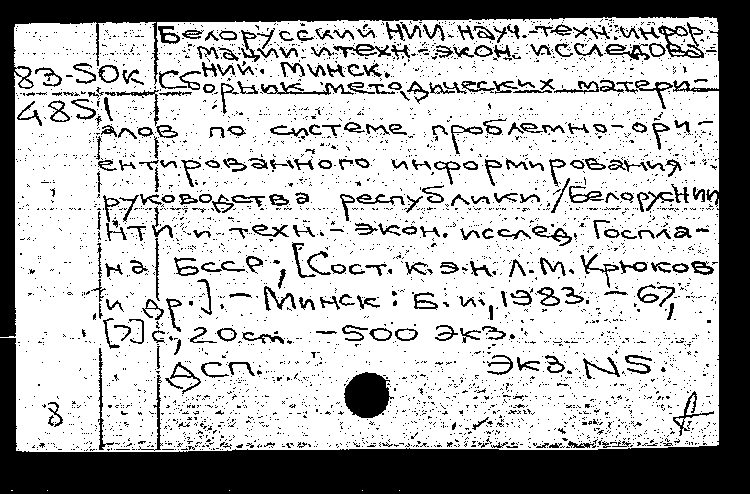 Белорусский НИИ науч.-техн. инфор-
мации и техн.-экон. исследова-
ний. Минск.
83-50к Сборник методических матери-
4851
алов по системе проблемно-ори-
ентированного информирования
руководства республики / БелорусНИИ
НТИ и техн.-экон. исслед. Госпла-
на БССР; [Сост. к.э.н. Л.М. Крюков
и др.]. - Минск: Б. и., 1983. - 67,
[?] с.; 20 см. - 500 экз.
ДСП. Экз. N5.
8